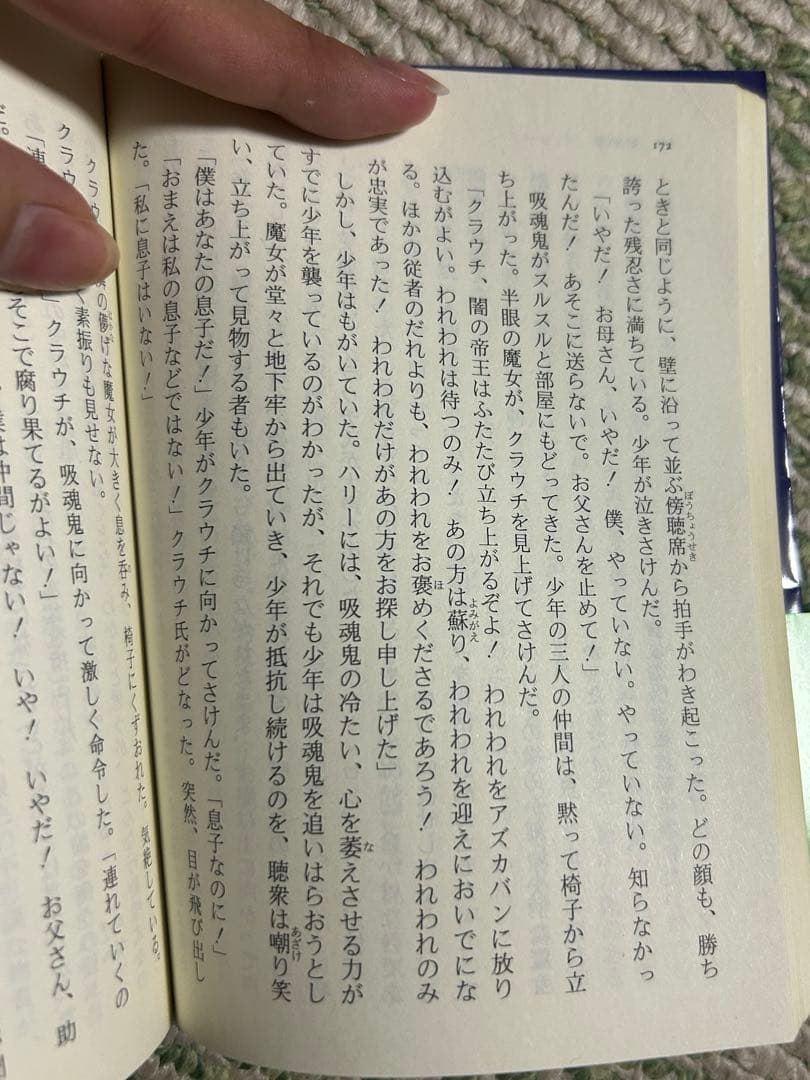 172
ときと同じように、壁に沿って並ぶ傍聴席から拍手がわき起こった。どの顔も、勝ち
ぼうちょうせき
誇った残忍さに満ちている。少年が泣きさけんだ。
「いやだ！　お母さん、いやだ！　僕、やっていない。やっていない。知らなかっ
たんだ！　あそこに送らないで。お父さんを止めて！」
吸魂鬼がスルスルと部屋にもどってきた。少年の三人の仲間は、黙って椅子から立
ち上がった。半眼の魔女が、クラウチを見上げてさけんだ。
「クラウチ、闇の帝王はふたたび立ち上がるぞよ！　われわれをアズカバンに放り
込むがよい。われわれは待つのみ！　あの方は蘇り、われわれを迎えにおいでにな
よみがえ
る。ほかの従者のだれよりも、われわれをお褒めくださるであろう！　われわれのみ
ほ
が忠実であった！　われわれだけがあの方をお探し申し上げた」
しかし、少年はもがいていた。ハリーには、吸魂鬼の冷たい、心を萎えさせる力が
な
すでに少年を襲っているのがわかったが、それでも少年は吸魂鬼を追いはらおうとし
ていた。魔女が堂々と地下牢から出ていき、少年が抵抗し続けるのを、聴衆は嘲り笑
あざけ
い、立ち上がって見物する者もいた。
「僕はあなたの息子だ！」少年がクラウチに向かってさけんだ。「息子なのに！」
「おまえは私の息子などではない！」クラウチ氏がどなった。突然、目が飛び出し
た。「私に息子はいない！」
クラウ
の儚げな魔女が大きく息を呑み、椅子にくずおれた。気絶している。
はかな
クラウ
素振りも見せない。
「連
クラウチが、吸魂鬼に向かって激しく命令した。「連れていくの
だ。
そこで腐り果てるがよい！」
は仲間じゃない！　いや！　いやだ！　お父さん、助